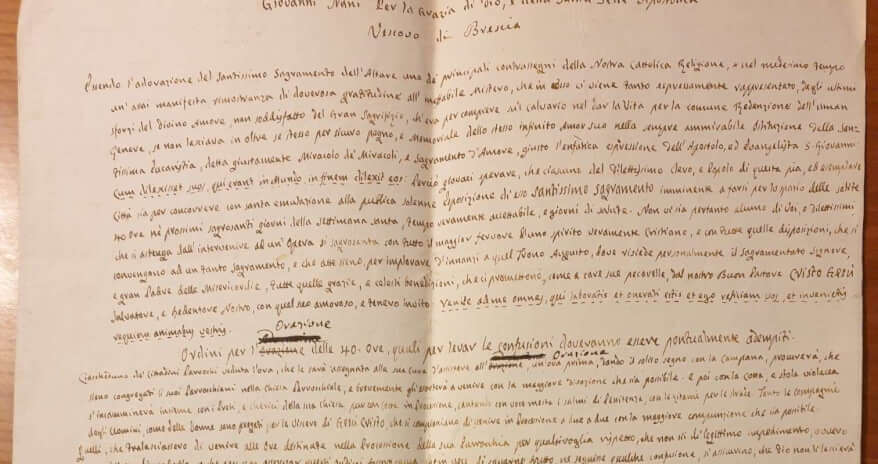 Giovanni Nani Per la Grazia di Dio, e della Santa Sede Apostolica
Vescovo di Brescia
Essendo l'adorazione del Santissimo Sagramento dell'Altare uno de' principali contrassegni della Nostra Cattolica Religione, e nel medesimo tempo
un' assai manifesta rimostranza di doverosa gratitudine all' ineffabile Mistero, che in esso ci viene tanto espressamente rappresentato, degli ultimi
sforzi del divino Amore, non soddisfatto del Gran Sagrifizio, ch'era per compiere sul Calvario nel dar la Vita per la comune Redenzione dell'Uman
Genere, se non lasciava in oltre se stesso per sicuro pegno, e Memoriale dello stesso infinito Amor suo nella sempre ammirabile Istituzione della San-
tissima Eucaristia, detta giustamente Miracolo de' Miracoli, e Sagramento d'Amore, giusto l'enfatica espressione dell'Apostolo, ed Evangelista S. Giovanni
Cum dilexisset suos, qui erant in Mundo in finem dilexit eos. Perciò giovaci sperare, che ciascuno del Dilettissimo Clero, e Popolo di questa pia, ed esemplare
Città sia per concorrere con santa emulazione alla publica solenne Esposizione di esso Santissimo Sagramento imminente a farsi per lo spazio delle solite
40 Ore ne' prossimi sagrosanti giorni della Settimana Santa, tempo veramente accettabile, e giorni di salute. Non vi sia pertanto alcuno di Voi, o Dilettissimi
che si astenga dall'intervenire ad un' Opera sì sagrosanta con tutto il maggior fervore d'uno spirito veramente Cristiano, e con tutte quelle disposizioni, che si
convengono ad un tanto Sagramento, e che atte sieno, per implorare d'innanzi a quel Trono Augusto, dove risiede personalmente il Sagramentato Signore,
e gran Padre delle Misericordie, tutte quelle grazie, e celesti benedizioni, che ci promettono, come a care sue pecorelle, dal nostro Buon Pastore Cristo Gesù
Salvatore, e Redentore Nostro, con quel suo amoroso, e tenero invito: Venite ad me omnes, qui laboratis et onerati estis et ego reficiam vos, et invenietis
requiem animabus vestris.
Orazione
Ordini per l' delle 40. Ore, quali per levar le confusioni dovevanno essere pontualmente adempiti.
Orazione
Ciascheduno de' Cittadini Parrochi veduta l'ora, che le sarà assegnata alla sua Cura d'assistere all' , un'ora prima, dando il solito segno con la campana, procurerà, che
sieno congregati li suoi Parrocchiani nella Chiesa Parrocchiale, e brevemente gli esorterà a venire con la maggiore divozione che sia possibile. E poi con la cotta, e stola violacea
s'incamminerà insieme con i Preti, e cherici della sua Chiesa processione, cantando con voce mesta i salmi di Penitenza, con le litanie per le strade. Tanto le compagnie
degli Uomini, come delle Donne sono pregati per le Viscere di Gesù Cristo, che si compiacciano di venire in Processione a due a due con la maggiore compunzione che sia possibile.
Quelli, che tralasciassero di venire alle Ore destinate nella Processione della sua Parrocchia per qualsivoglia rispetto, che non sia di legittimo impedimento, ovvero